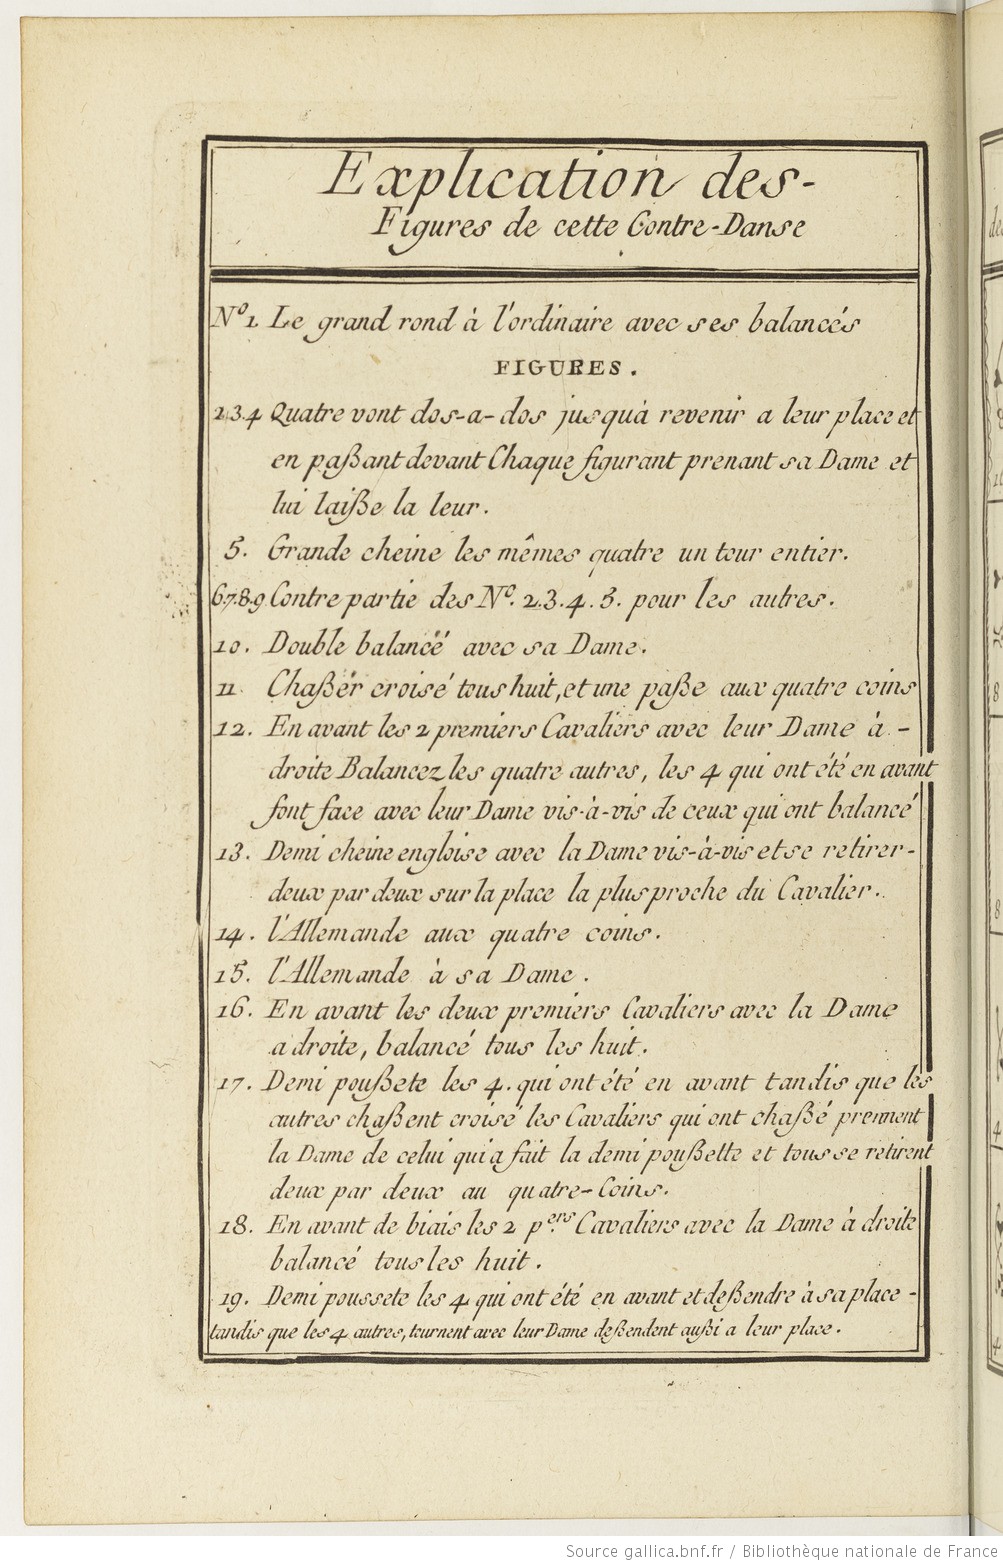 Explication des-
Figures de cette Contre-Danse
Nº1. Le grand rond à l'ordinaire avec ses balancés
FIGURES.
2.3.4 Quatre vont dos-a-dos jusquà revenir a leur place et
en paßant devant Chaque figurant prenant sa Dame et
lui laiße la leur.
5. Grande cheine les mêmes quatre un tour entier.
6.7.8.9 Contre partie des Nº. 2.3.4.5. pour les autres.
10. Double balancéé avec sa Dame.
11. Chaßér croisé tous huit, et une paße aux quatre coins
12. En avant les 2 premiers Cavaliers avec leur Dame à -
droite Balancez les quatre autres, les 4 qui ont été en avant
font face avec leur Dame vis-à-vis de ceux qui ont balancé
13. Demi cheine engloise avec la Dame vis-à-vis et se retirer-
deux par deux sur la place la plus proche du Cavalier.
14. l'Allemande aux quatre coins.
15. l'Allemande à sa Dame.
16. En avant les deux premiers Cavaliers avec la Dame
a droite, balancé tous les huit.
17. Demi poußete les 4. qui ont été en avant tandis que les
autres chaßent croisé les Cavaliers qui ont chaßé prennent
la Dame de celui qui a fait la demi poußette et tous se retirent
deux par deux au quatre-Coins.
18. En avant de biais les 2 p.ers Cavaliers avec la Dame à droite
balancé tous les huit.
19. Demi poussete les 4 qui ont été en avant et deßendre à sa place -
tandis que les 4 autres, tournent avec leur Dame deßendent außi a leur place.
Source gallica.bnf.fr / Bibliothèque nationale de France